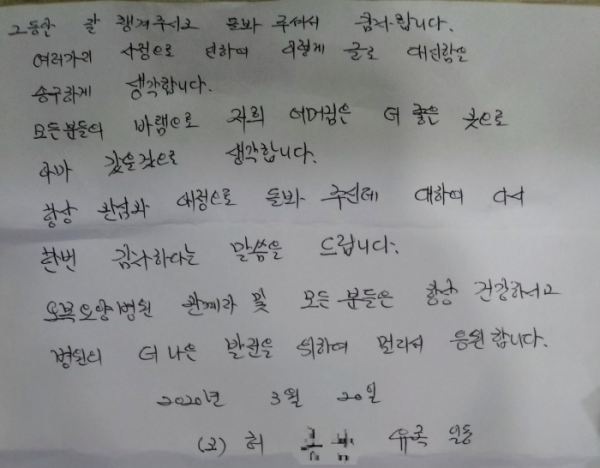 그동안 잘 챙겨주시고 돌봐 주셔서 감사합니다.
여러가지 사정으로 인하여 이렇게 글로 대신함을
송구하게 생각합니다.
모든분들의 바램으로 저희 어머님은 더 좋은 곳으로
아마 갔을것으로 생각합니다.
항상 관심과 애정으로 돌봐 주신데 대하여 다시
한번 감사하다는 말씀을 드립니다.
오복요양병원 관계자 및 모든분들은 항상 건강하시고
병원의 더 나은 발전을 위하여 멀리서 응원합니다.
2020년 3월 20일
(고) 허 유족 일동